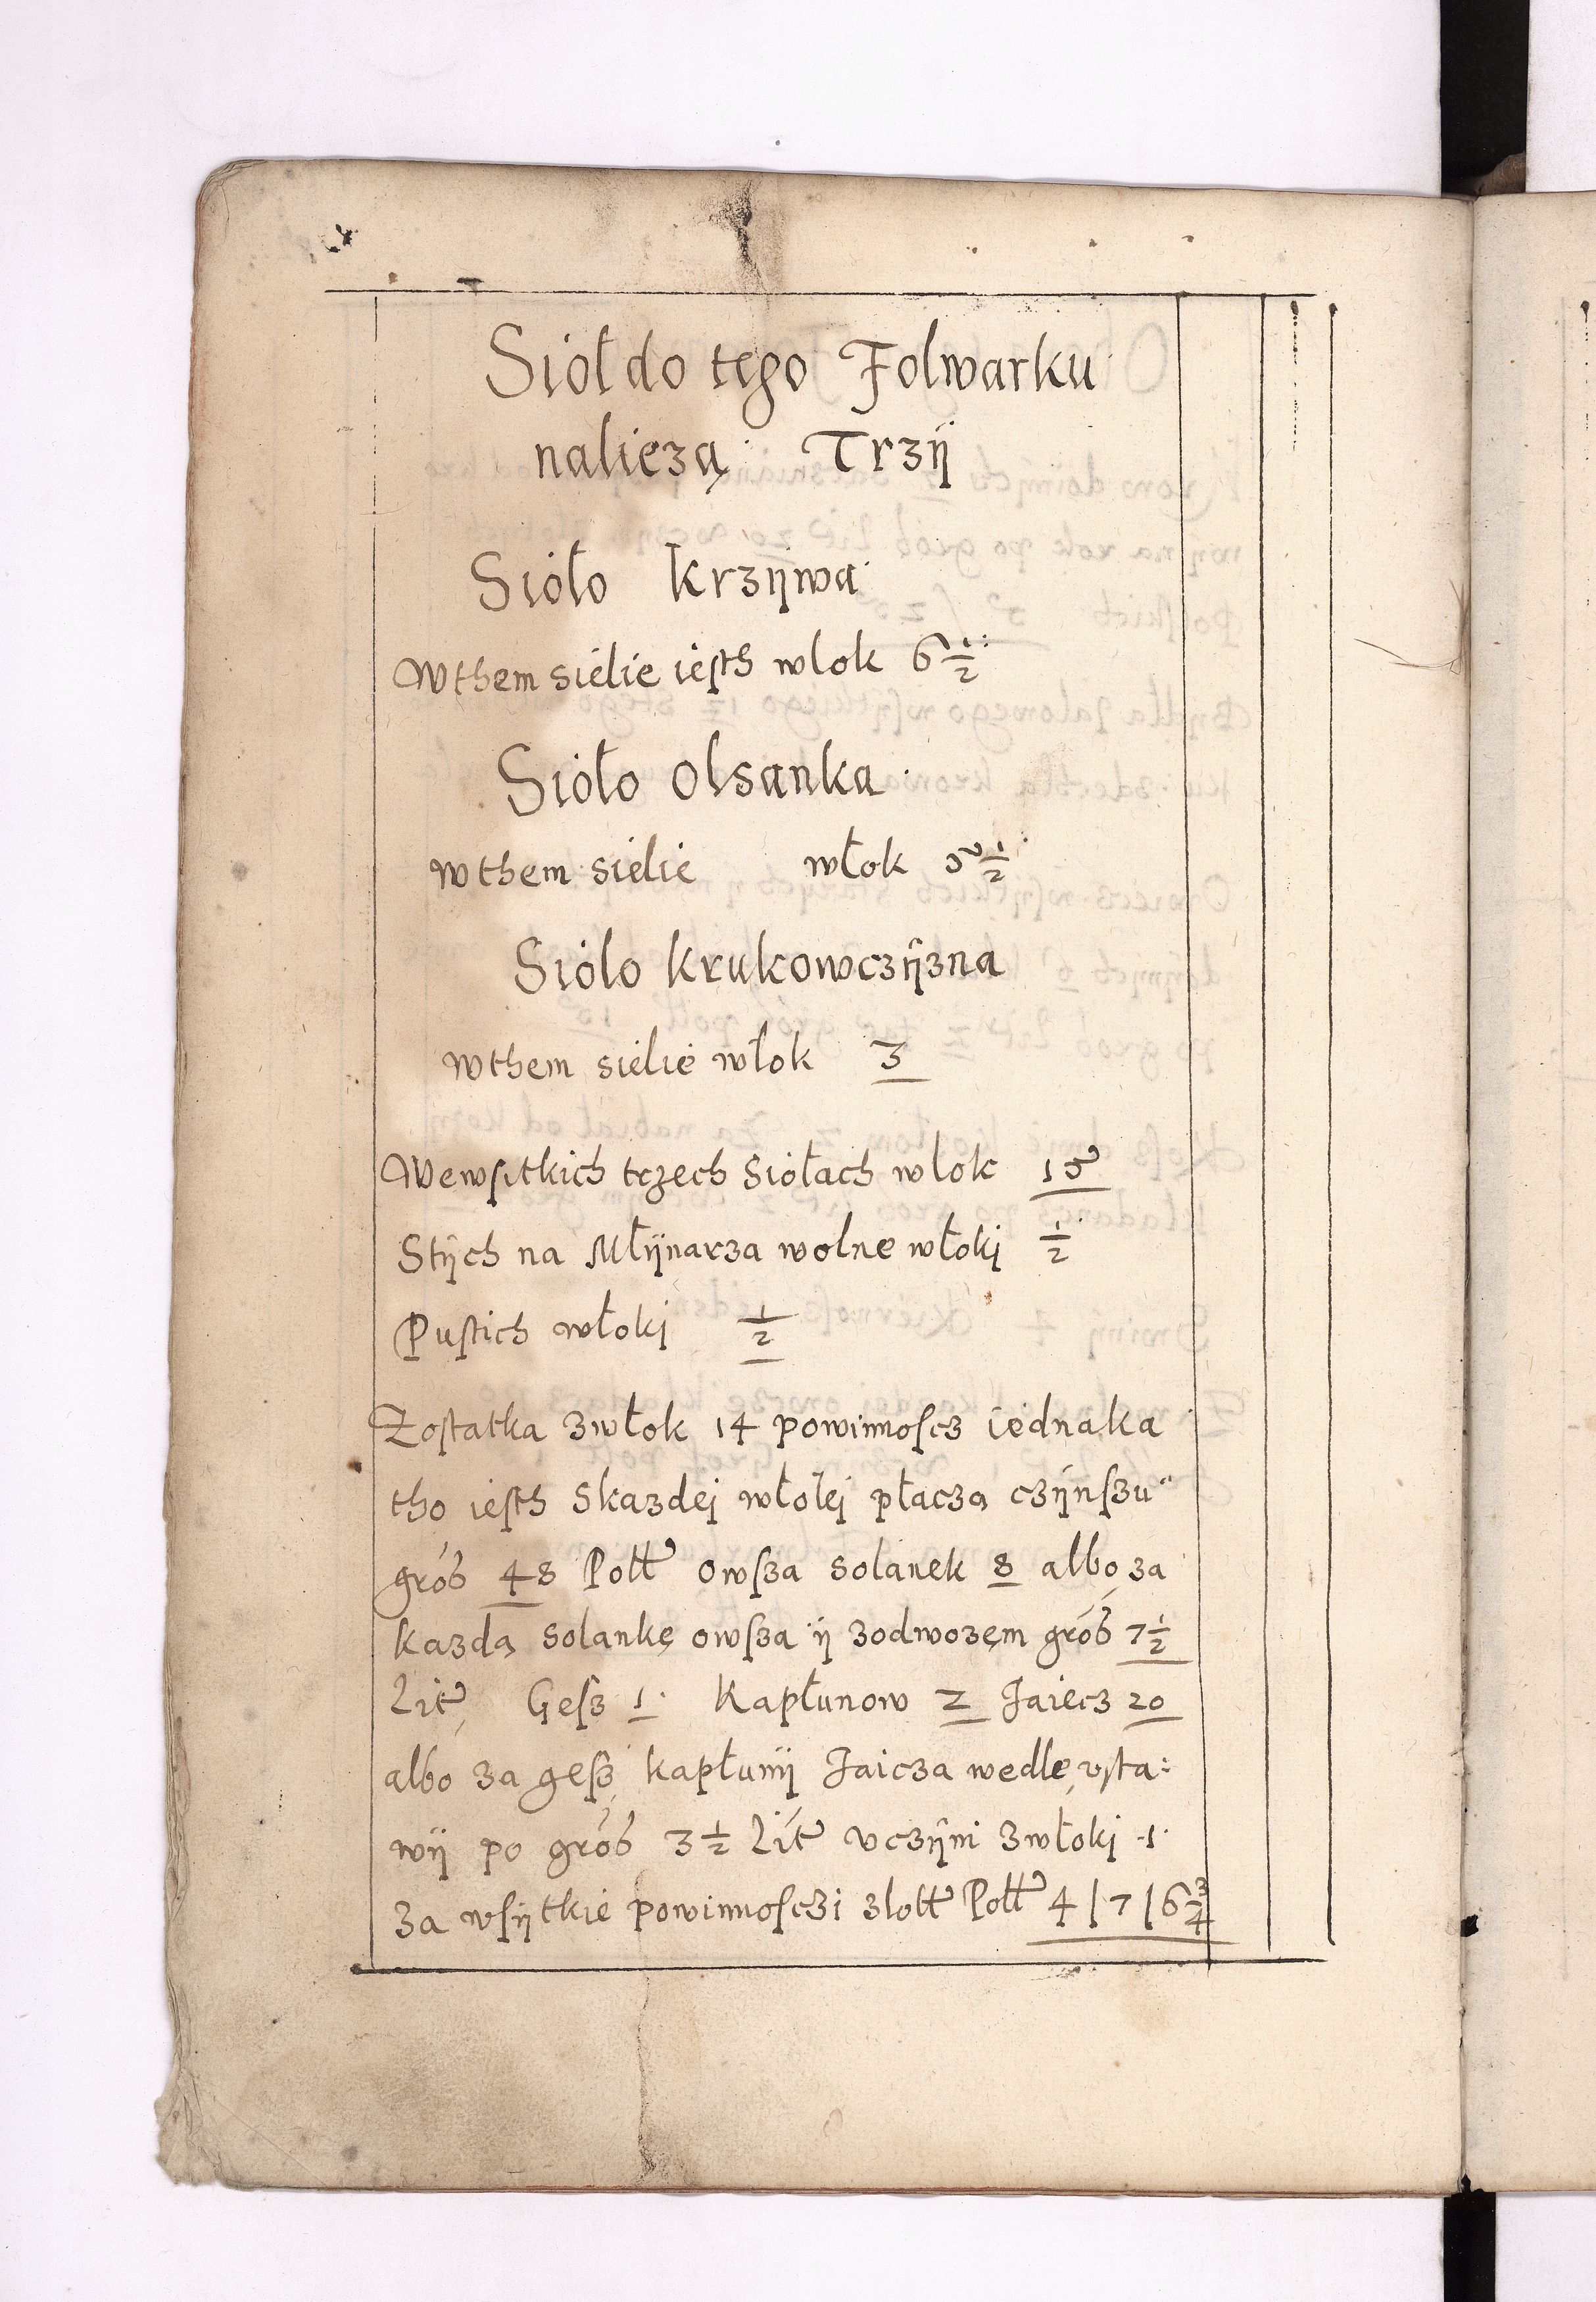 Sioł do tego Folwarku
naliezą Trzÿ
Sioło Krzÿwa
Wthem sielie iesth wlok 6 1/2
Sioło Olsanka
wthem sielie włok 5 1/2
Sioło Krukowczÿzna
wthem sielie włok 3
Wewsitkich trzech Siołach wlok 15
Stÿch na Młÿnarza wolne włoki 1/2
Pustich włoki 1/2
Zostatka zwłok 14 powinnoscz iednaka
tho iesth Skazdei włokj płaczą czÿnszu
gros 48 Poll owsza solanek 8 albo za
kazdą solankę owsza ÿ zodwozęm gros 7 1/2
Lit Gęsz 1 Kapłunow 2 Jaiecz 20
albo za gęsz kapłunÿ Jaicza wedle vsta:
wÿ po gros 3 1/2 Lit vczÿni zwłoki 1
za wsÿtkie powinnosczi zlott Poll 4 | 7 | 6 3/4